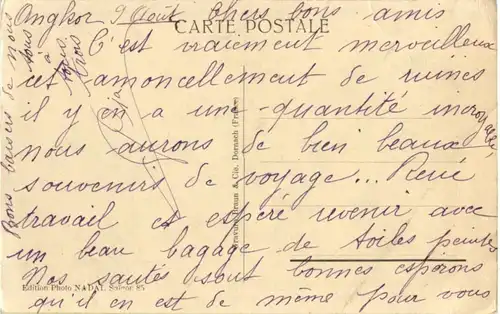 Angkor 9 Août Chers bons amis
CARTE POSTALE
C'est vraiment merveilleux
cet amoncellement de ruines
il y en a une quantité incroyable,
nous aurons de bien beaux
souvenirs de voyage... René
travail et espére revenir avec
un beau bagage de toiles peintes
Nos santés sont bonnes espérons
qu'il en est de même pour vous
Bons baisers de nous
à vous
trois
Braun & Cie, Dornach (France)
Edition Photo NADAL Saïgon 85